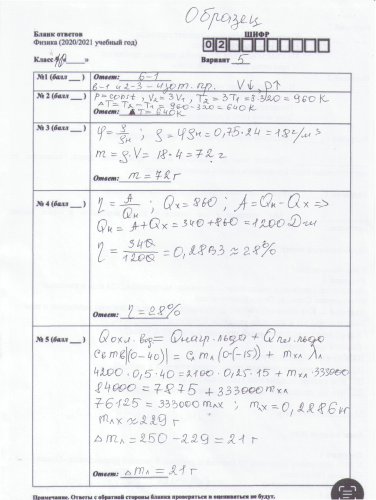 Образец
Бланк ответов
Физика (2020/2021 учебный год)
ШИФР
02
Класс «10»
Вариант 5
№1 (балл ___)
Ответ: 6-1
6-1 и 2-3 - изот. пр. V↓, p↑
№ 2 (балл ___)
P = const, V₂ = 3V₁, T₂ = 3T₁ = 3·320 = 960 К
ΔT = T₂ - T₁ = 960 - 320 = 640 К
Ответ: ΔT = 640К
№ 3 (балл ___)
φ = ρ/ρн ; ρ = φρн = 0,75·24 = 18 г/м³
m = ρ·V = 18·4 = 72 г
Ответ: m = 72 г
№ 4 (балл ___)
η = A/Qн ; Qх = 860 ; A = Qн - Qх =>
Qн = A + Qх = 340 + 860 = 1200 Дж
η = 340/1200 = 0,2833 ≈ 28%
Ответ: η = 28%
№ 5 (балл ___)
Qохл. вод = Qнагр. льда + Qпл. льда
Cв mв |(0-40)| = Cл mл (0-(-15)) + mхл λл
4200·0,5·40 = 2100·0,25·15 + mхл·333000
84000 = 7875 + 333000 mхл
76125 = 333000 mхл ; mх = 0,2286 кг
mлх ≈ 229 г
Δmл = 250 - 229 = 21 г
Ответ: Δmл = 21 г
Примечание. Ответы с обратной стороны бланка проверяться и оцениваться не будут.